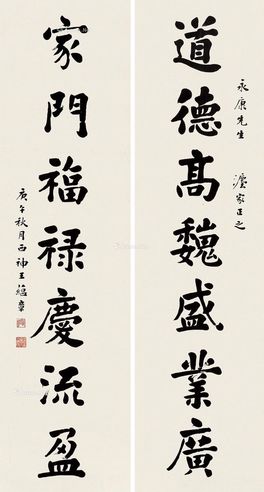 永康先生 灋家正之
道德高巍盛業廣
家門福禄慶流盈
庚午秋月西神王蘊章